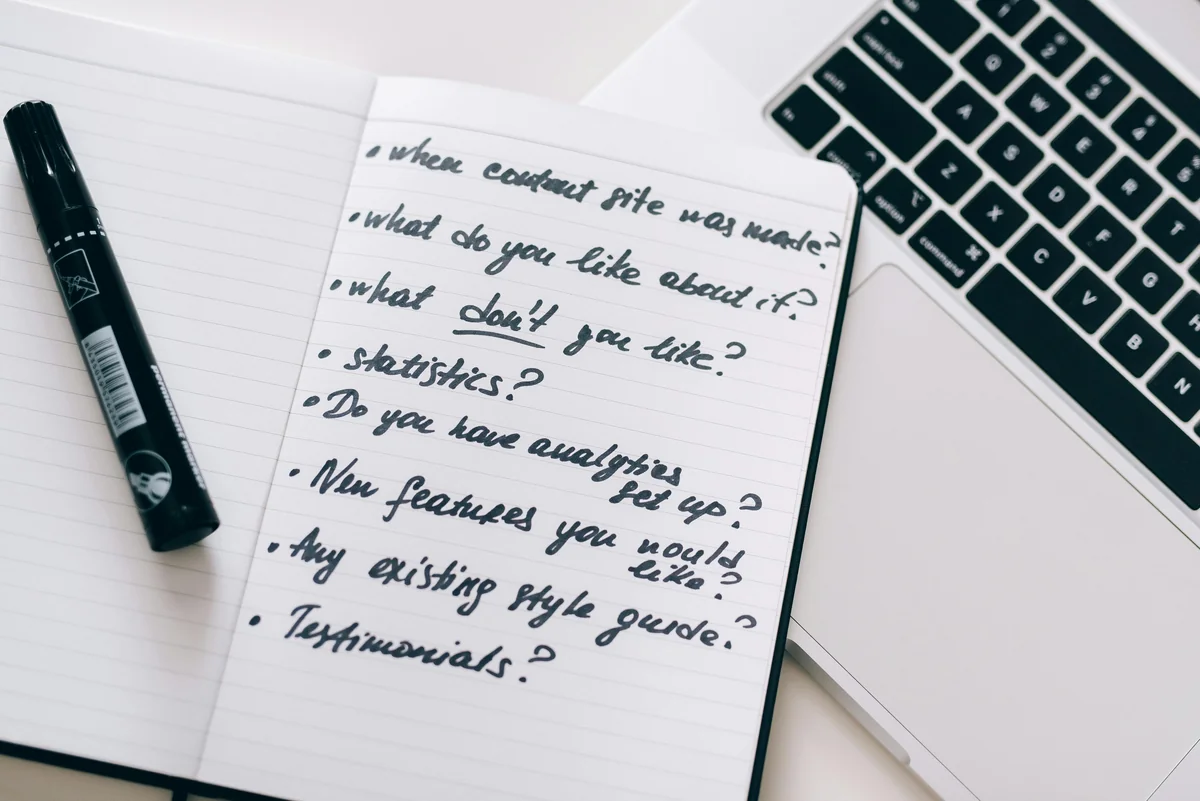 • when content site was made?
• what do you like about it?
• what don't you like?
• statistics?
• Do you have analytics
set up?
• New features you would
like?
• Any existing style guide?
• Testimonials?
fn
shift
control
option
command
Q
W
E
R
T
A
S
D
F
G
Z
X
C
V
B
N
1
2
3
4
5